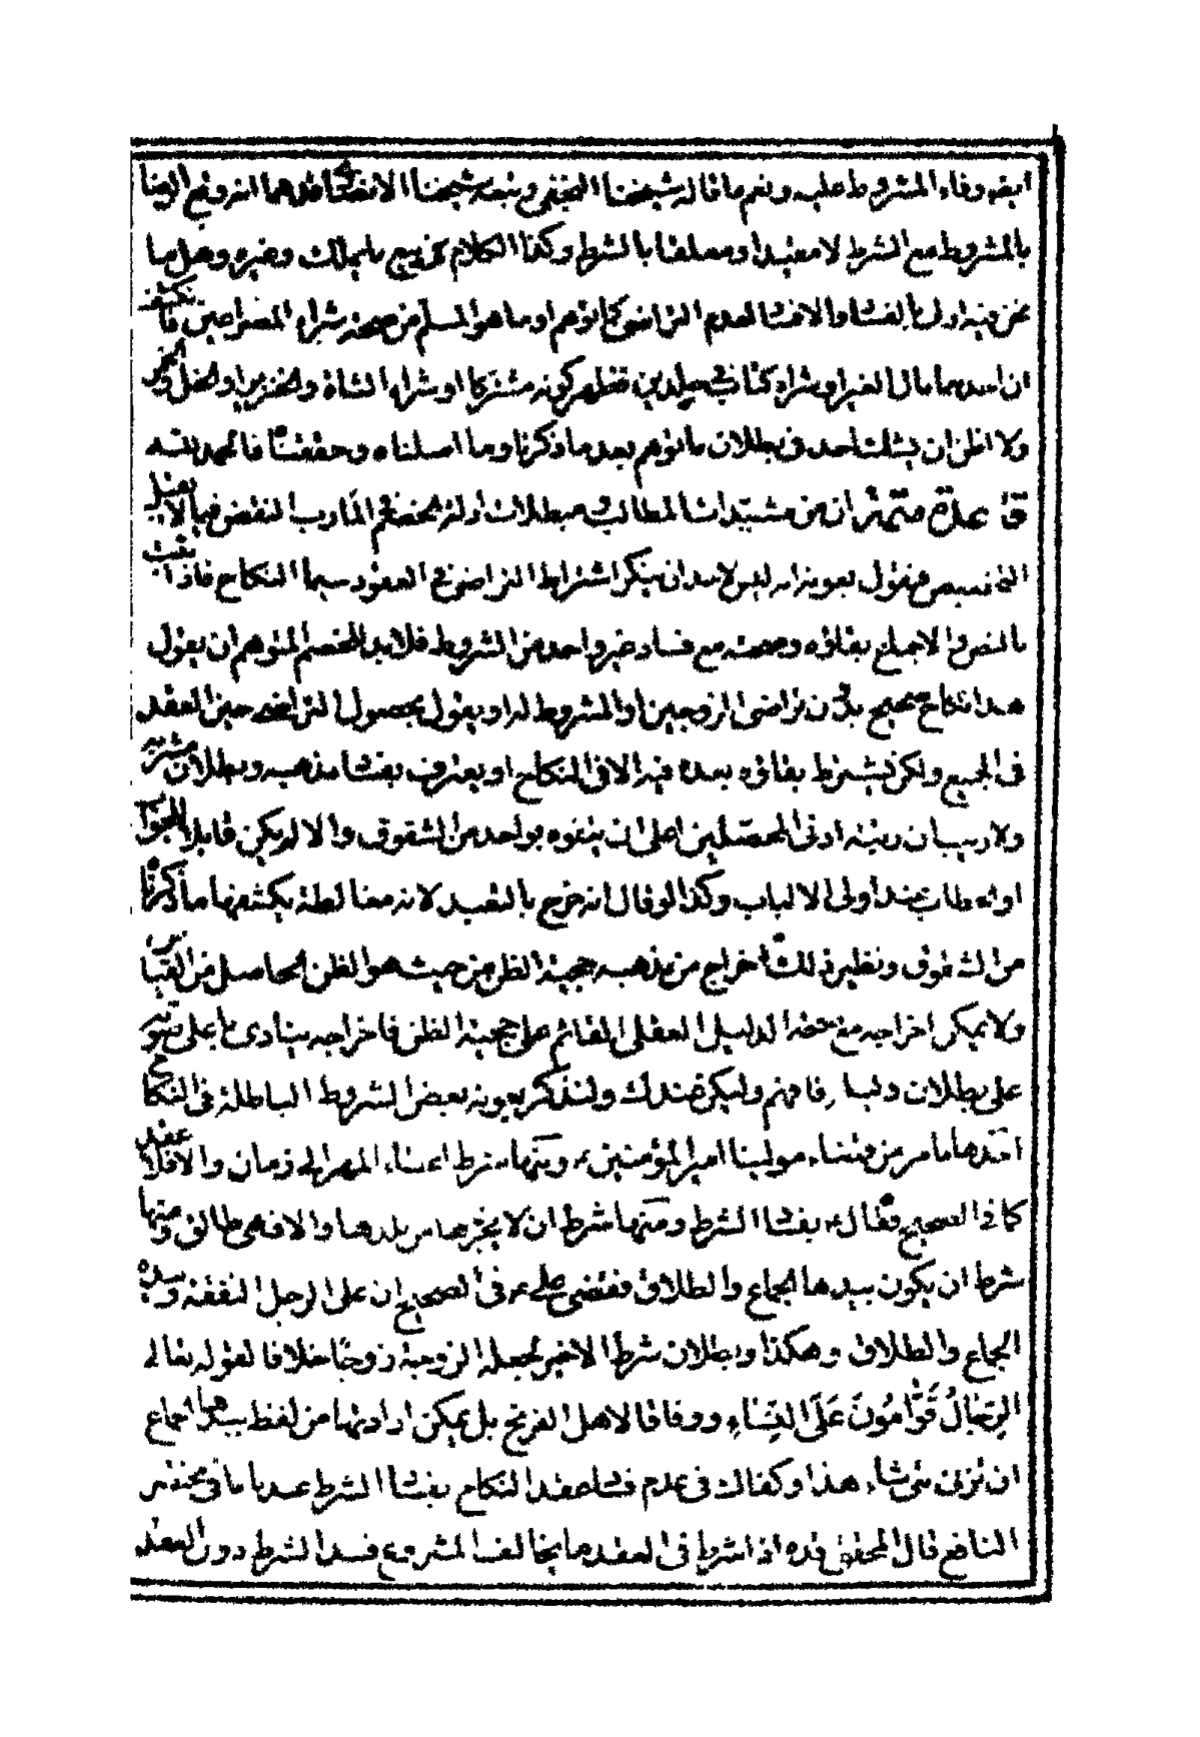 وفاء المشروط عليه ونعم ما قاله شيخنا النجفي وتبعه شيخنا الانصاري
بالمشروط مع الشرط لا مقيدا ومعلقا بالشرط وكفا الكلام في بيع ما يملك وغيره وهل ما
نحن فيه اولى بالفساد والافساد لعدم التراضي كما توهم او ما هو المسلم من صحة شراء المصراعين
ان احدهما مال الغير او شراء كتاب في جلدين فظهر كونه مشتركا او شراء الشاة والخنزير او الخل والخمر
ولا اظن ان يشك احد في بطلان ما توهم بعد ما ذكرنا وما اصلناه وحققنا فالحمد لله
التخصيص فنقول بعونه انه ليس لاحد ان ينكر اشتراط التراضي في العقود سيما النكاح فاذا
بالنص والاجماع بقاؤه وصحته مع فساد خبر واحد من الشروط فلابد للخصم المتوهم ان يقول
هذا نكاح صحيح بدون تراضي الزوجين او المشروط له او يقول بحصول التراضي حين العقد
في الجميع ولكن يشترط بقاؤه بعده فيه الا في النكاح او يعترف بفساد مذهبه وبطلان مشربه
ولا ريب ان ادنى المحصلين اعلى ان يتفوه بواحد من الشقوق والا لم يكن قابلا
عند اولى الالباب وكذا لو قال انه خرج بالتعبد لانه مغالطة يكشفها ما ذكرنا
من الشقوق ونظير ذلك اخراج من مذهبه حجية الظن من حيث هو الظن الحاصل من القياس
ولا يمكن اخراجه الدليل العقلي القائم على حجية الظن فاخراجه ينادي باعلى
على بطلان دليله فافهم وليكن عندك ولنذكر بعونه بعض الشروط الباطلة في النكاح
احدها ما مر من مولينا امير المؤمنين ع ومنها شرط المهر الى زمان والا فلا عقد
كما في الصحيح فقال ع بفساد الشرط ومنها شرط ان لا يخرجها من بلدها والا فهي طالق ومنها
شرط ان يكون بيدها الجماع والطلاق فقضى علي ع في الصحيح ان على الرجل النفقة وبيده
الجماع والطلاق وهكذا وبطلان شرط الاخير لجعله الزوجة زوجا خلافا لقوله تعالى
الرِّجَالُ قَوَّامُونَ عَلَى النِّسَاءِ ووفاقا لاهل الفرنج بل يمكن ارادتها من لفظ بيدها الجماع
ان تزني متى شاء هذا وكفاك في عدم فساد عقد النكاح بفساد الشرط ما في مختصر
النافع قال المحقق قده اذا شرط في العقد ما يخالف المشروع فسد الشرط دون العقد